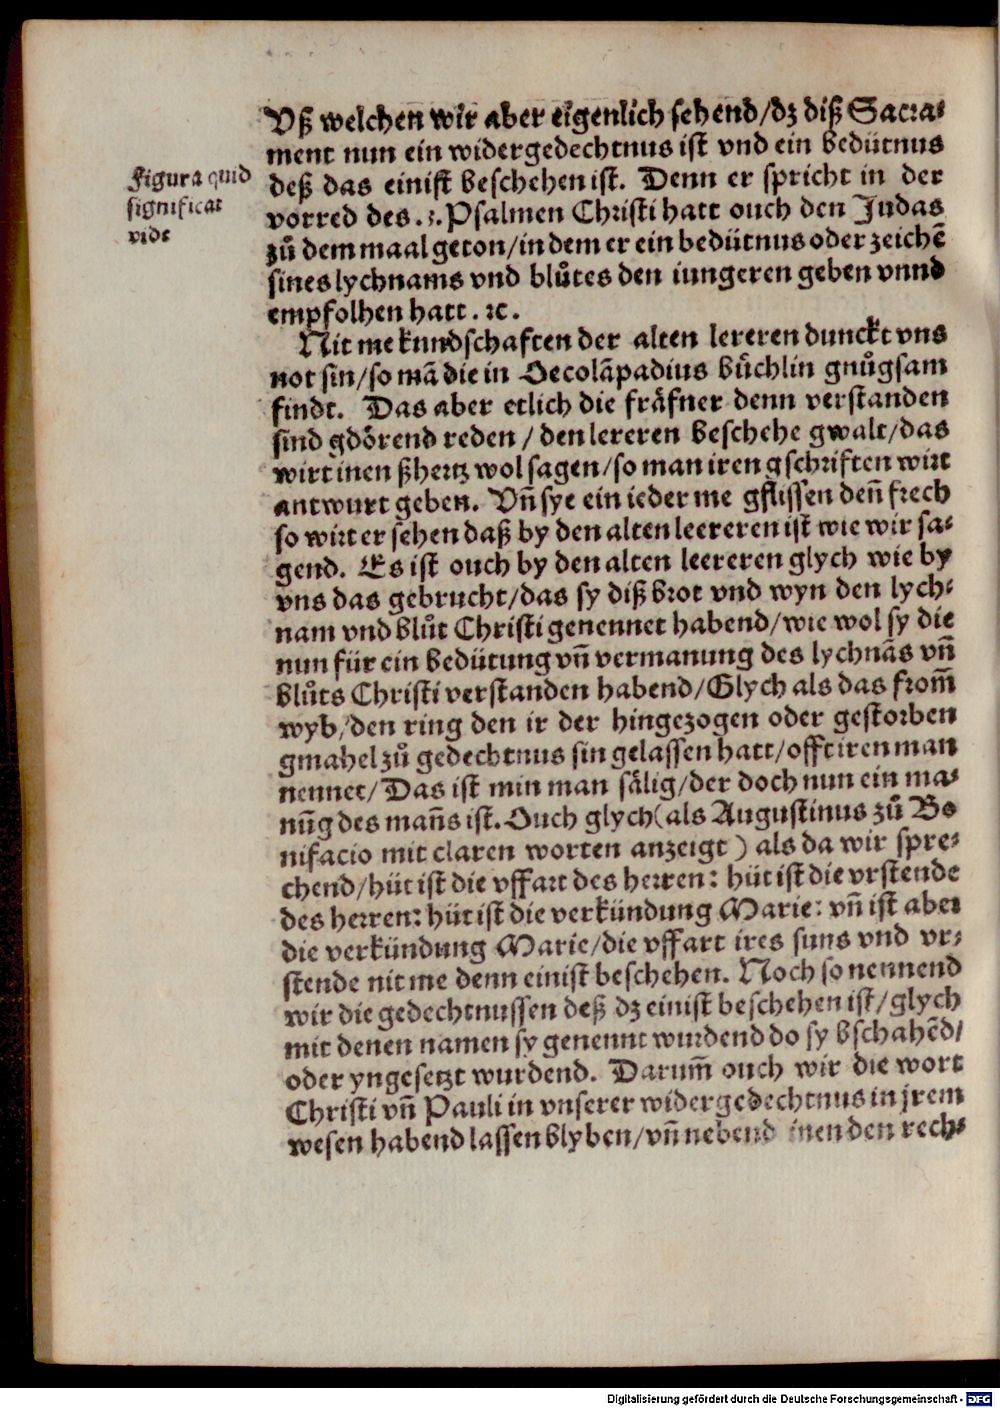 Vß welchen wir aber eigenlich sehend/dz diß Sacra⸗
ment nun ein widergedechtnus ist vnd ein bedütnus
deß das einist beschehen ist. Denn er spricht in der
vorred des .3. Psalmen Christi hatt ouch den Judas
zů dem maal geton/in dem er ein bedütnus oder zeichē
sines lychnams vnd blůtes den iungeren geben vnnd
empfolhen hatt. ꝛc.
Figura quid
significat
vide
Nit me kundschaften der alten lereren dunckt vns
not sin/so mā die in Oecolāpadius bůchlin gnůgsam
findt. Das aber etlich die fräfner denn verstanden
sind gdörend reden/den lereren beschehe gwalt/das
wirt inen ßhertz wol sagen/so man iren gschriften wirt
antwurt geben. Vñ sye ein ieder me gflissen deñ frech
so wirt er sehen daß by den alten leereren ist wie wir sa⸗
gend. Es ist ouch by den alten leereren glych wie by
vns das gebrucht/das sy diß brot vnd wyn den lych⸗
nam vnd blůt Christi genennet habend/wie wol sy die
nun für ein bedütung vñ vermanung des lychnās vñ
blůts Christi verstanden habend/Glych als das from̄
wyb/den ring den ir der hingezogen oder gestorben
gmahel zů gedechtnus sin gelassen hatt/offt iren man
nennet/Das ist min man sälig/der doch nun ein ma⸗
nūg des mañs ist. Ouch glych (als Augustinus zů Bo
nifacio mit claren worten anzeigt) als da wir spre⸗
chend/hüt ist die vffart des herren: hüt ist die vrstende
des herren: hüt ist die verkündung Marie: vñ ist aber
die verkündung Marie/die vffart ires suns vnd vr⸗
stende nit me denn einist beschehen. Noch so nennend
wir die gedechtnussen deß dz einist beschehen ist/glych
mit denen namen sy genennt wurdend do sy bschahēd/
oder yngesetzt wurdend. Darum̄ ouch wir die wort
Christi vñ Pauli in vnserer widergedechtnus in jrem
wesen habend lassen blyben/vñ nebend inen den rech⸗
Digitalisierung gefördert durch die Deutsche Forschungsgemeinschaft - DFG